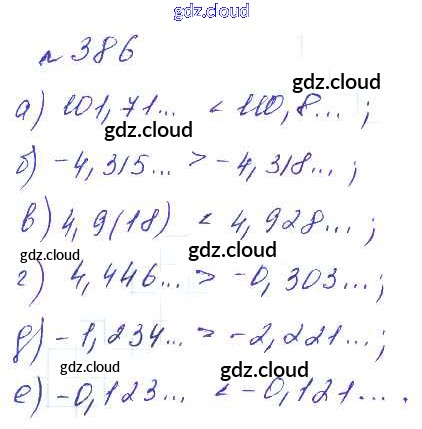 gdz.cloud
№ 386
gdz.cloud
а) 101,71... < 110,8... ;
gdz.cloud
б) -4,315... > -4,318... ;
gdz.cloud
в) 4,9(18) < 4,928... ;
gdz.cloud
gdz.cloud
г) 4,446... > -0,303... ;
gdz.cloud
д) -1,234... > -2,221... ;
gdz.cloud
gdz.cloud
е) -0,123... < -0,121... .